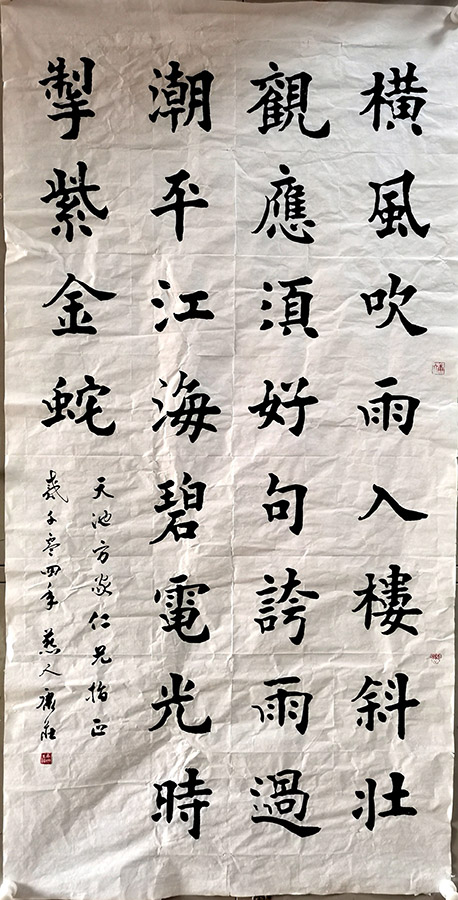 橫風吹雨入樓斜壯
觀應須好句誇雨過
潮平江海碧電光時
掣紫金蛇
天池方家仁兄指正
歲千零四年燕人康莊